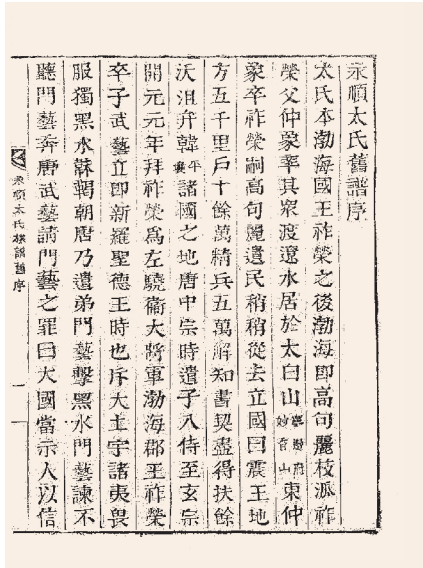 永順太氏舊譜序
太氏本渤海國王祚榮之後渤海即高句麗枝派祚
榮父仲象率其衆渡遼水居於太白山寧邊府妙香山東仲
象卒祚榮嗣高句麗遺民稍稍從去立國曰震王地
方五千里戶十餘萬精兵五萬解知書契盡得扶餘
沃沮弁韓平壤諸國之地唐中宗時遣子入侍至玄宗
開元元年拜祚榮爲左驍衛大將軍渤海郡王祚榮
卒子武藝立即新羅聖德王時也斥大土宇諸夷畏
服獨黑水靺鞨朝唐乃遣弟門藝擊黑水門藝諫不
聽門藝奔唐武藝請門藝之罪曰大國當示人以信
永順太氏族譜舊序
一